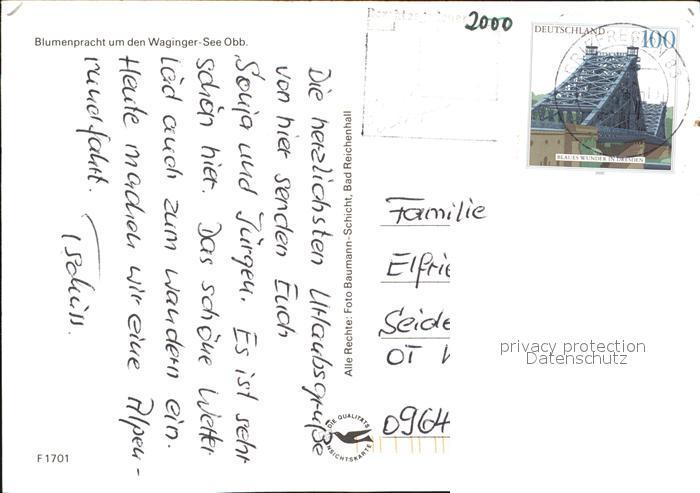 Blumenpracht um den Waginger-See Obb.
Die herzlichsten Urlaubsgrüße
von hier senden Euch
Sonja und Jürgen. Es ist sehr
schön hier. Das schöne Wetter
läd auch zum wandern ein.
Heute machen wir eine Alpen-
rundfahrt.
Tschüss.
F 1701
Alle Rechte: Foto Baumann-Schicht, Bad Reichenhall
DIE QUALITÄTS
ANSICHTSKARTE
2000
DEUTSCHLAND 100
BLAUES WUNDER IN DRESDEN
Familie
Elfrie
Seide
OT
0964
privacy protection
Datenschutz